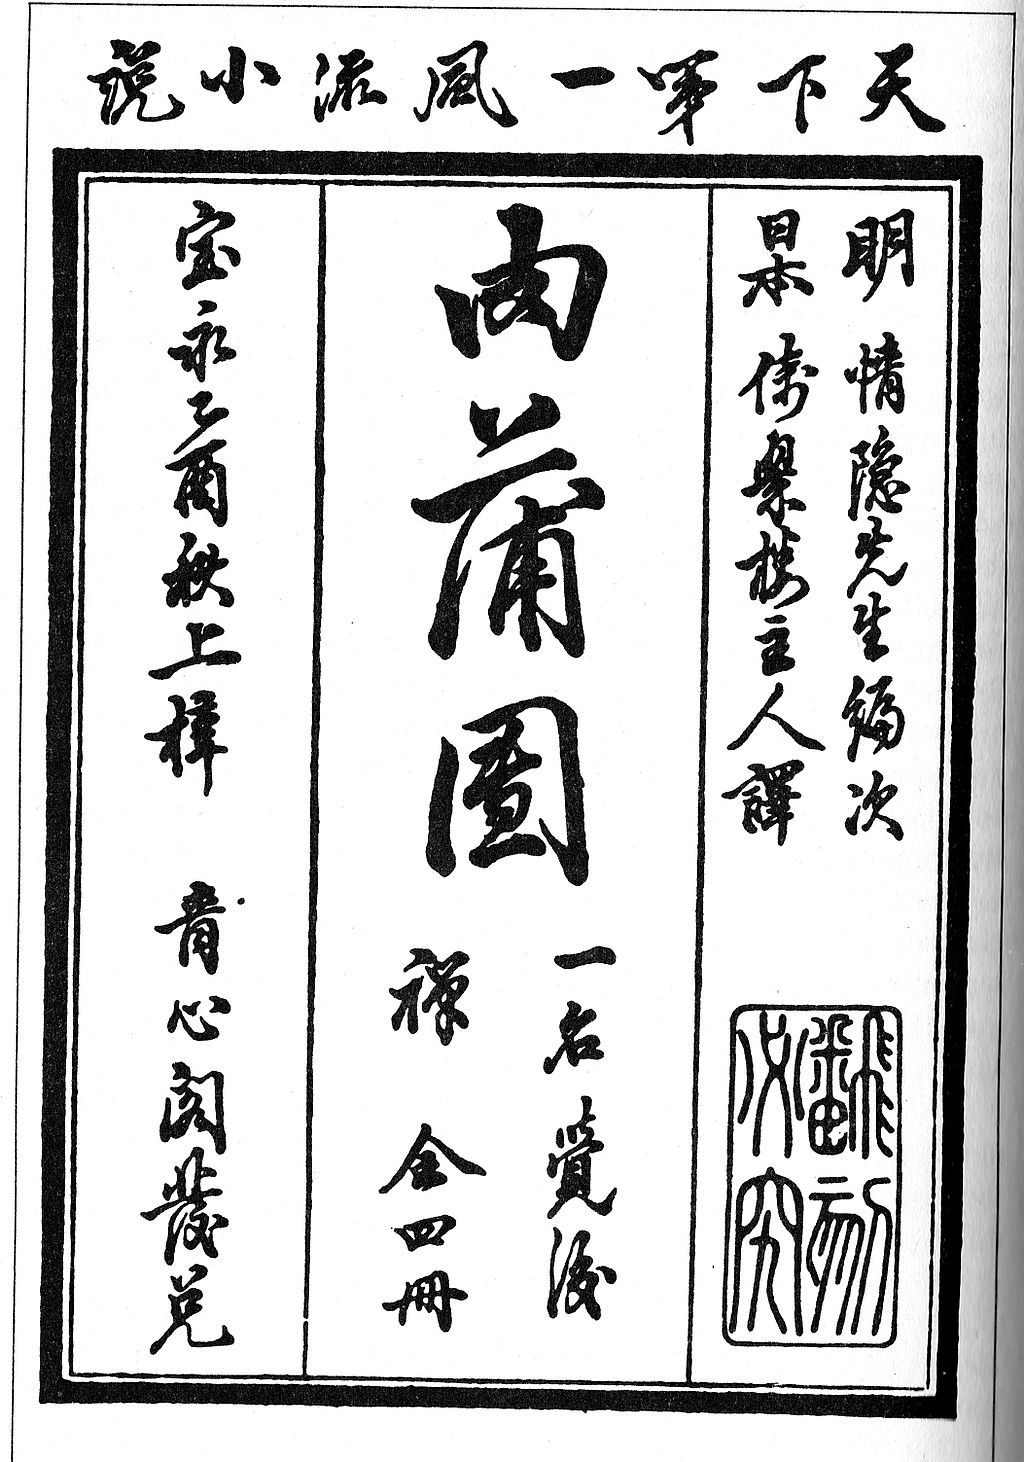 天下第一風流小説
明 情隐先生編次
日本 倚翠楼主人譯
飜刻必究
肉蒲團
一名覺後禅 全四冊
宝永乙酉秋上梓 青心閣發兌